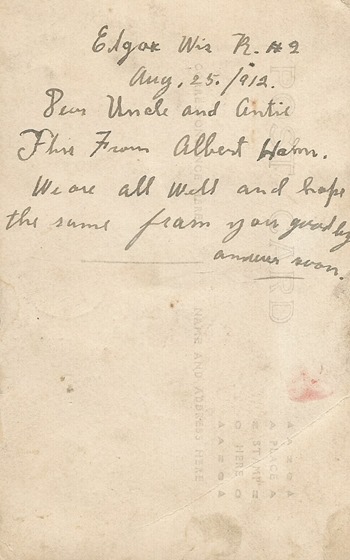 Edgar Wis R. #2
Aug, 25. 1912.
Dear Uncle and Antie
This From Albert Hahn.
We are all well and hope
the same from you good by
answer soon.
POST CARD
NAME AND ADDRESS HERE
PLACE
STAMP
HERE